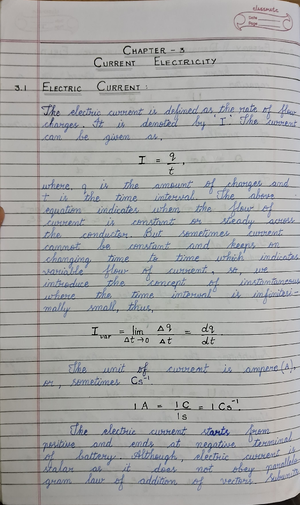 classmate
Date
Page
CHAPTER - 3
CURRENT ELECTRICITY
3.1 ELECTRIC CURRENT:
The electric current is defined as the rate of flow
charges. It is denoted by 'I'. The current
can be given as,
I = q/t,
where, q is the amount of charges and
t is the time interval. The above
equation indicates when the flow of
current is constant or steady across
the conductor. But sometimes current
cannot be constant and keeps on
changing time to time which indicates
variable flow of current, so, we
introduce the concept of instantaneous
where the time interval is infinitesi-
mally small, thus,
I var = lim Δt→0 Δq/Δt = dq/dt
The unit of current is ampere (A),
or, sometimes Cs⁻¹
1 A = 1C/1s = 1 Cs⁻¹.
The electric current starts from
positive and ends at negative terminal
of battery. Although, electric current is
scalar as it does not obey parallelo-
gram law of addition of vectors.